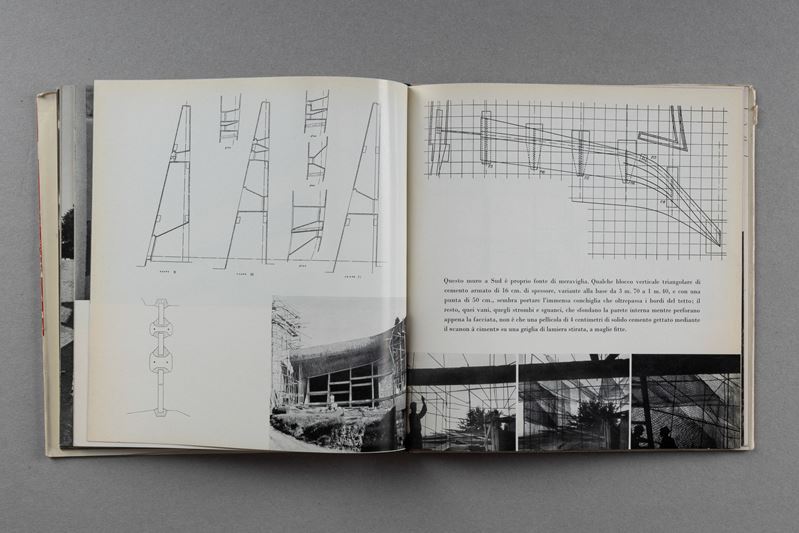 Questo muro a Sud è proprio fonte di meraviglia. Qualche blocco verticale triangolare di
cemento armato di 16 cm. di spessore, variante alla base da 3 m. 70 a 1 m. 40, e con una
punta di 50 cm., sembra portare l'immensa conchiglia che oltrepassa i bordi del tetto; il
resto, quei vani, quegli strombi e sguanci, che sfondano la parete interna mentre perforano
appena la facciata, non è che una pellicola di 4 centimetri di solido cemento gettato mediante
il «canon à ciment» su una griglia di lamiera stirata, a maglie fitte.